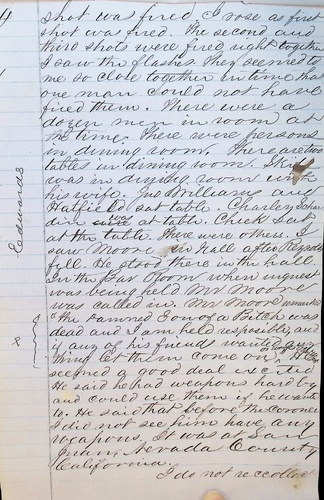 shot was fired I rose as first
shot was fired. The second and
third shots were fired right together
I saw the flashes they seemed to
me so close together in time that
one man could not have
fired them. There were a
dozen men in room at
the time. There were persons
in dining room. There are two
tables in dining room.
was in dining room with
his wife. Williams and
Hatfield sat table. Charley
at table. Chick sat
at the table. There were others. I
saw Moore in hall after
fell. He stood there in the hall.
In the Bar Room when inquest
was being held Mr Moore
was called in. Mr Moore remarked
"the damned Son of a Bitch was
dead and I am held resposible, and
if any of his friends wants any
thing let them come on,"
seemed a good deal excited
He said he had weapons hard by
and could use them if he wanted
to. He said that before the Coroner
I did not see him have any
weapons. It was at San
Juan, Nevada County
California.
I do not reccollect
Edwards